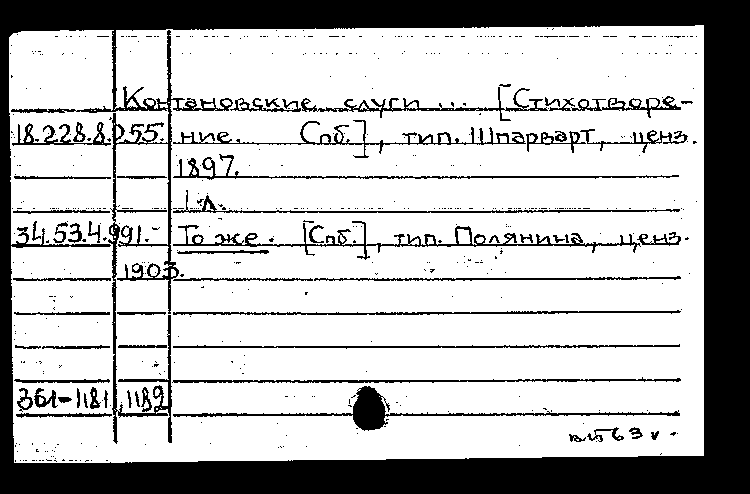 Контановские слуги ... [Стихотворе-
18.228.8.255. ние. Спб.], тип. Шпарварт, ценз.
1897.
1 л.
34.53.4.991.- То же. [Спб.], тип. Полянина, ценз.
1903.
361-1181,1182
63